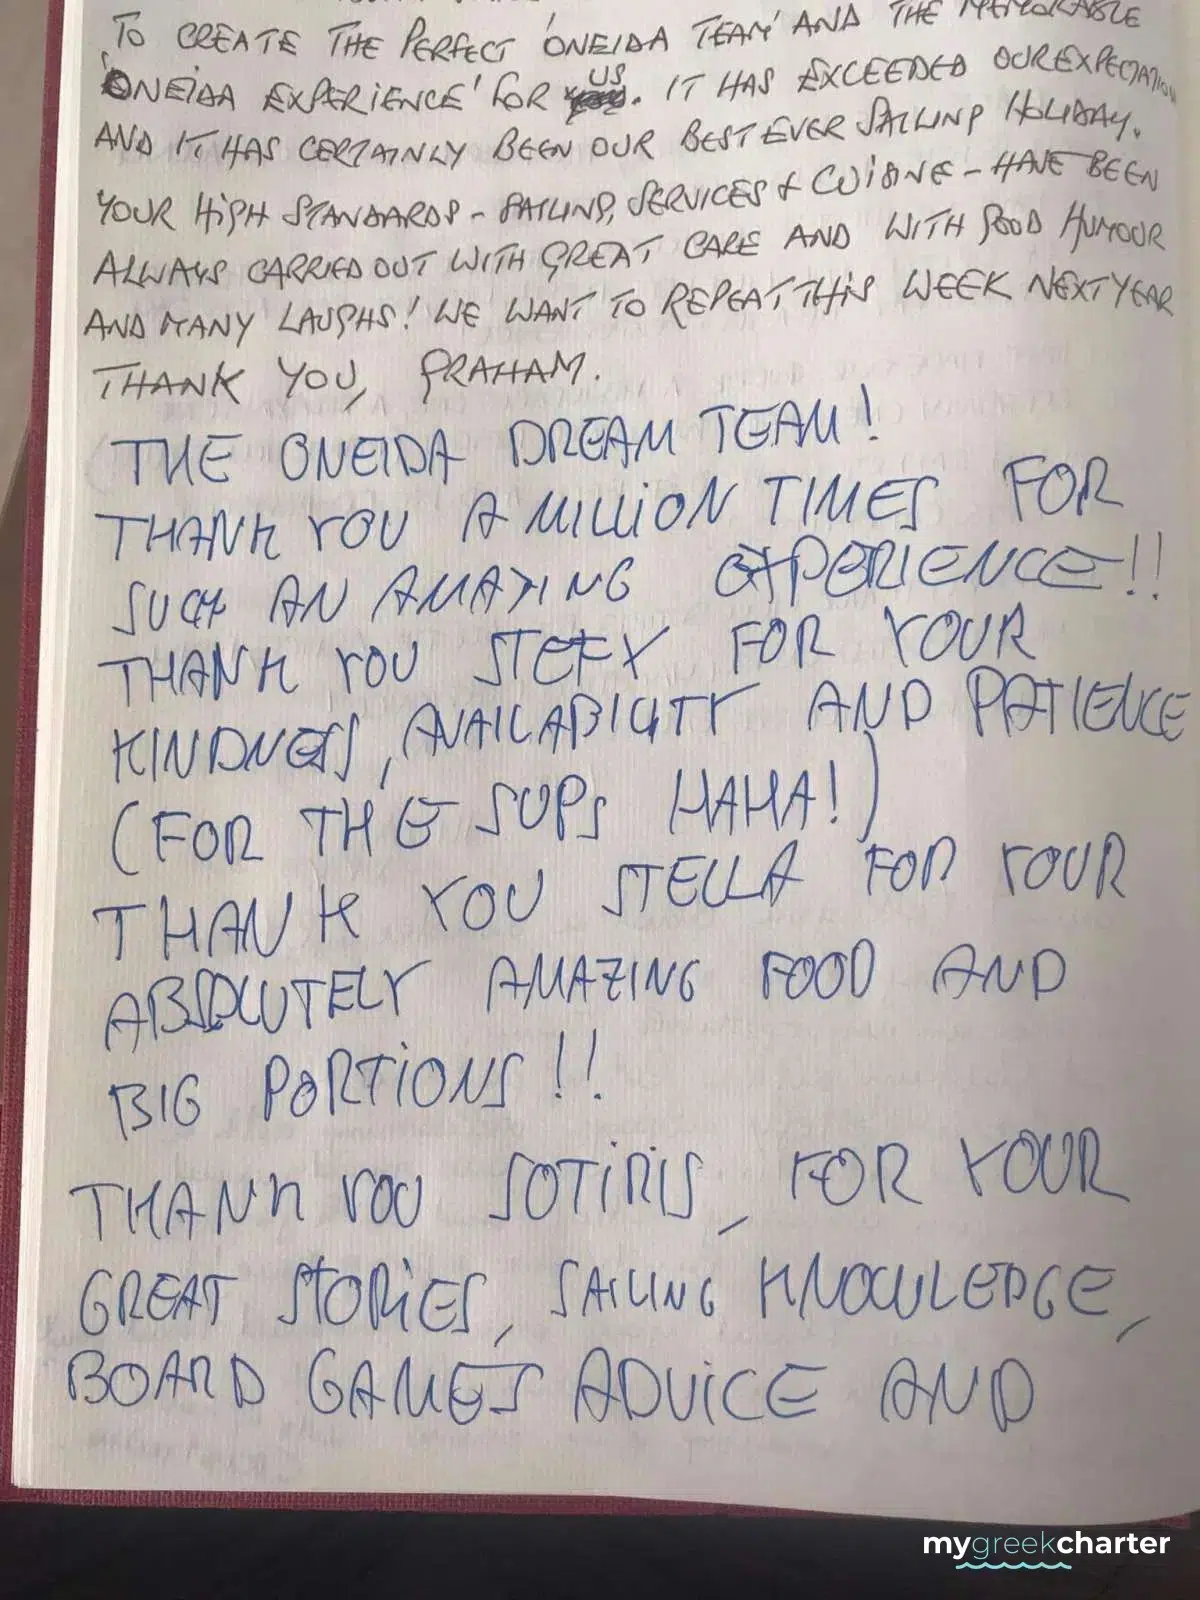 TO CREATE THE PERFECT 'ONEIDA TEAM' AND THE MEMORABLE
'ONEIDA EXPERIENCE' FOR US. IT HAS EXCEEDED OUR EXPECTATION
AND IT HAS CERTAINLY BEEN OUR BEST EVER SAILING HOLIDAY.
YOUR HIGH STANDARDS - SAILING, SERVICES & CUISINE - HAVE BEEN
ALWAYS CARRIED OUT WITH GREAT CARE AND WITH GOOD HUMOUR
AND MANY LAUGHS! WE WANT TO REPEAT THIS WEEK NEXT YEAR
THANK YOU, GRAHAM.
THE ONEIDA DREAM TEAM!
THANK YOU A MILLION TIMES FOR
SUCH AN AMAZING EXPERIENCE!!
THANK YOU STEFY FOR YOUR
KINDNESS, AVAILABILITY AND PATIENCE
(FOR THE SUPS HAHA!)
THANK YOU STELLA FOR YOUR
ABSOLUTELY AMAZING FOOD AND
BIG PORTIONS!!
THANK YOU SOTIRIS, FOR YOUR
GREAT STORIES, SAILING KNOWLEDGE,
BOARD GAMES ADVICE AND
mygreekcharter